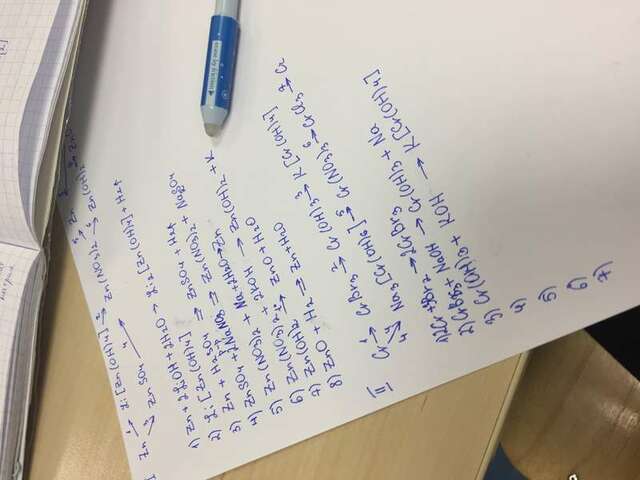 Zn
Zn 1→ Li[Zn(OH)4] 2↘ Zn(NO3)2 6→ Zn(OH)2 → ZnO
3↘ ZnSO4 4↗
1) Zn + 2LiOH + 2H2O → Li2[Zn(OH)4] + H2↑
2) Li[Zn(OH)4]
3) Zn + H2SO4 → ZnSO4 + H2↑
4) ZnSO4 + 2NaNO3 → Zn(NO3)2 + Na2SO4
5) Zn(NO3)2 + Na + 2H2O → Zn
6) Zn(NO3)2 + 2KOH → Zn(OH)2 + K
7) Zn(OH)2 t°→ ZnO + H2O
8) ZnO + H2 → Zn + H2O
II Cr 1→ CrBr3 2→ Cr(OH)3 3→ K[Cr(OH)4]
4↘ Na3[Cr(OH)6] 5→ Cr(NO3)3 6→ CrCl3 7→ Cr
1) 2Cr + 3Br2 → 2CrBr3
2) CrBr3 + NaOH → Cr(OH)3 + Na
3) Cr(OH)3 + KOH → K[Cr(OH)4]
4)
5)
6)
7)